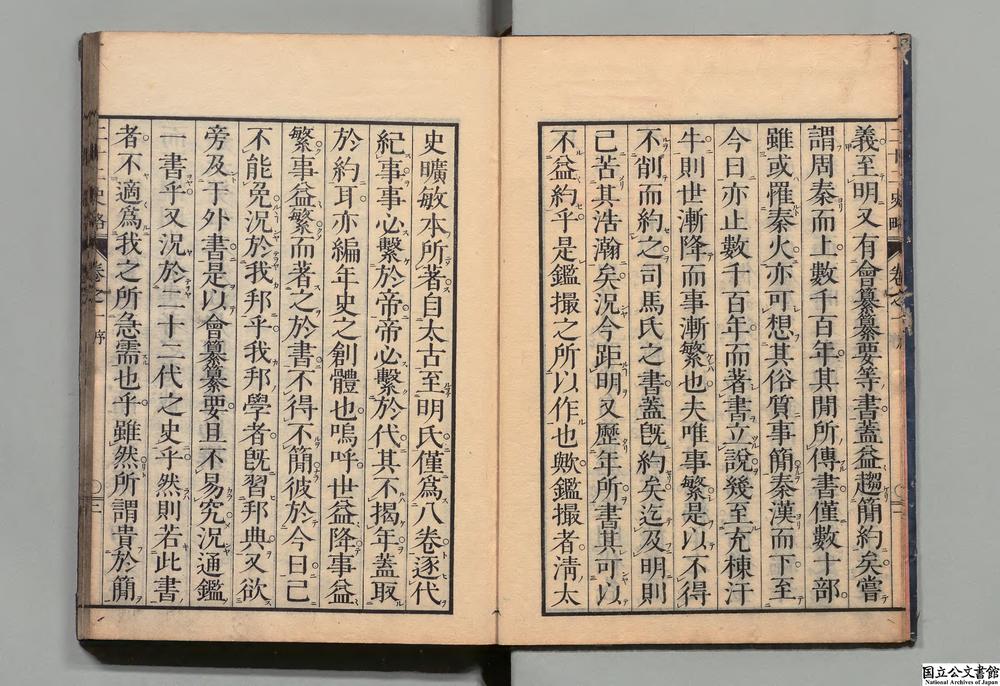 義至明又有會纂纂要等書蓋益趨簡約矣嘗
謂周秦而上數千百年其閒所傳書僅數十部
雖或罹秦火亦可想其俗質事簡秦漢而下至
今日亦止數千百年而著書立說幾至充棟汗
牛則世漸降而事漸繁也夫唯事繁是以不得
不削而約之司馬氏之書蓋旣約矣迄及明則
已苦其浩瀚矣況今距明又歷年所書其可以
不益約乎是鑑撮之所以作也歟鑑撮者淸太
史曠敏本所著自太古至明氏僅爲八卷逐代
紀事事必繫於帝帝必繫於代其不揭年蓋取
於約耳亦編年史之創體也嗚呼世益降事益
繁事益繁而著之於書不得不簡彼於今日已
不能免況於我邦乎我邦學者旣習邦典又欲
旁及于外書是以會纂纂要且不易究況通鑑
一書乎又況於二十二代之史乎然則若此書
者不適爲我之所急需也乎雖然所謂貴於簡
史略 卷之一 序
国立公文書館
National Archives of Japan